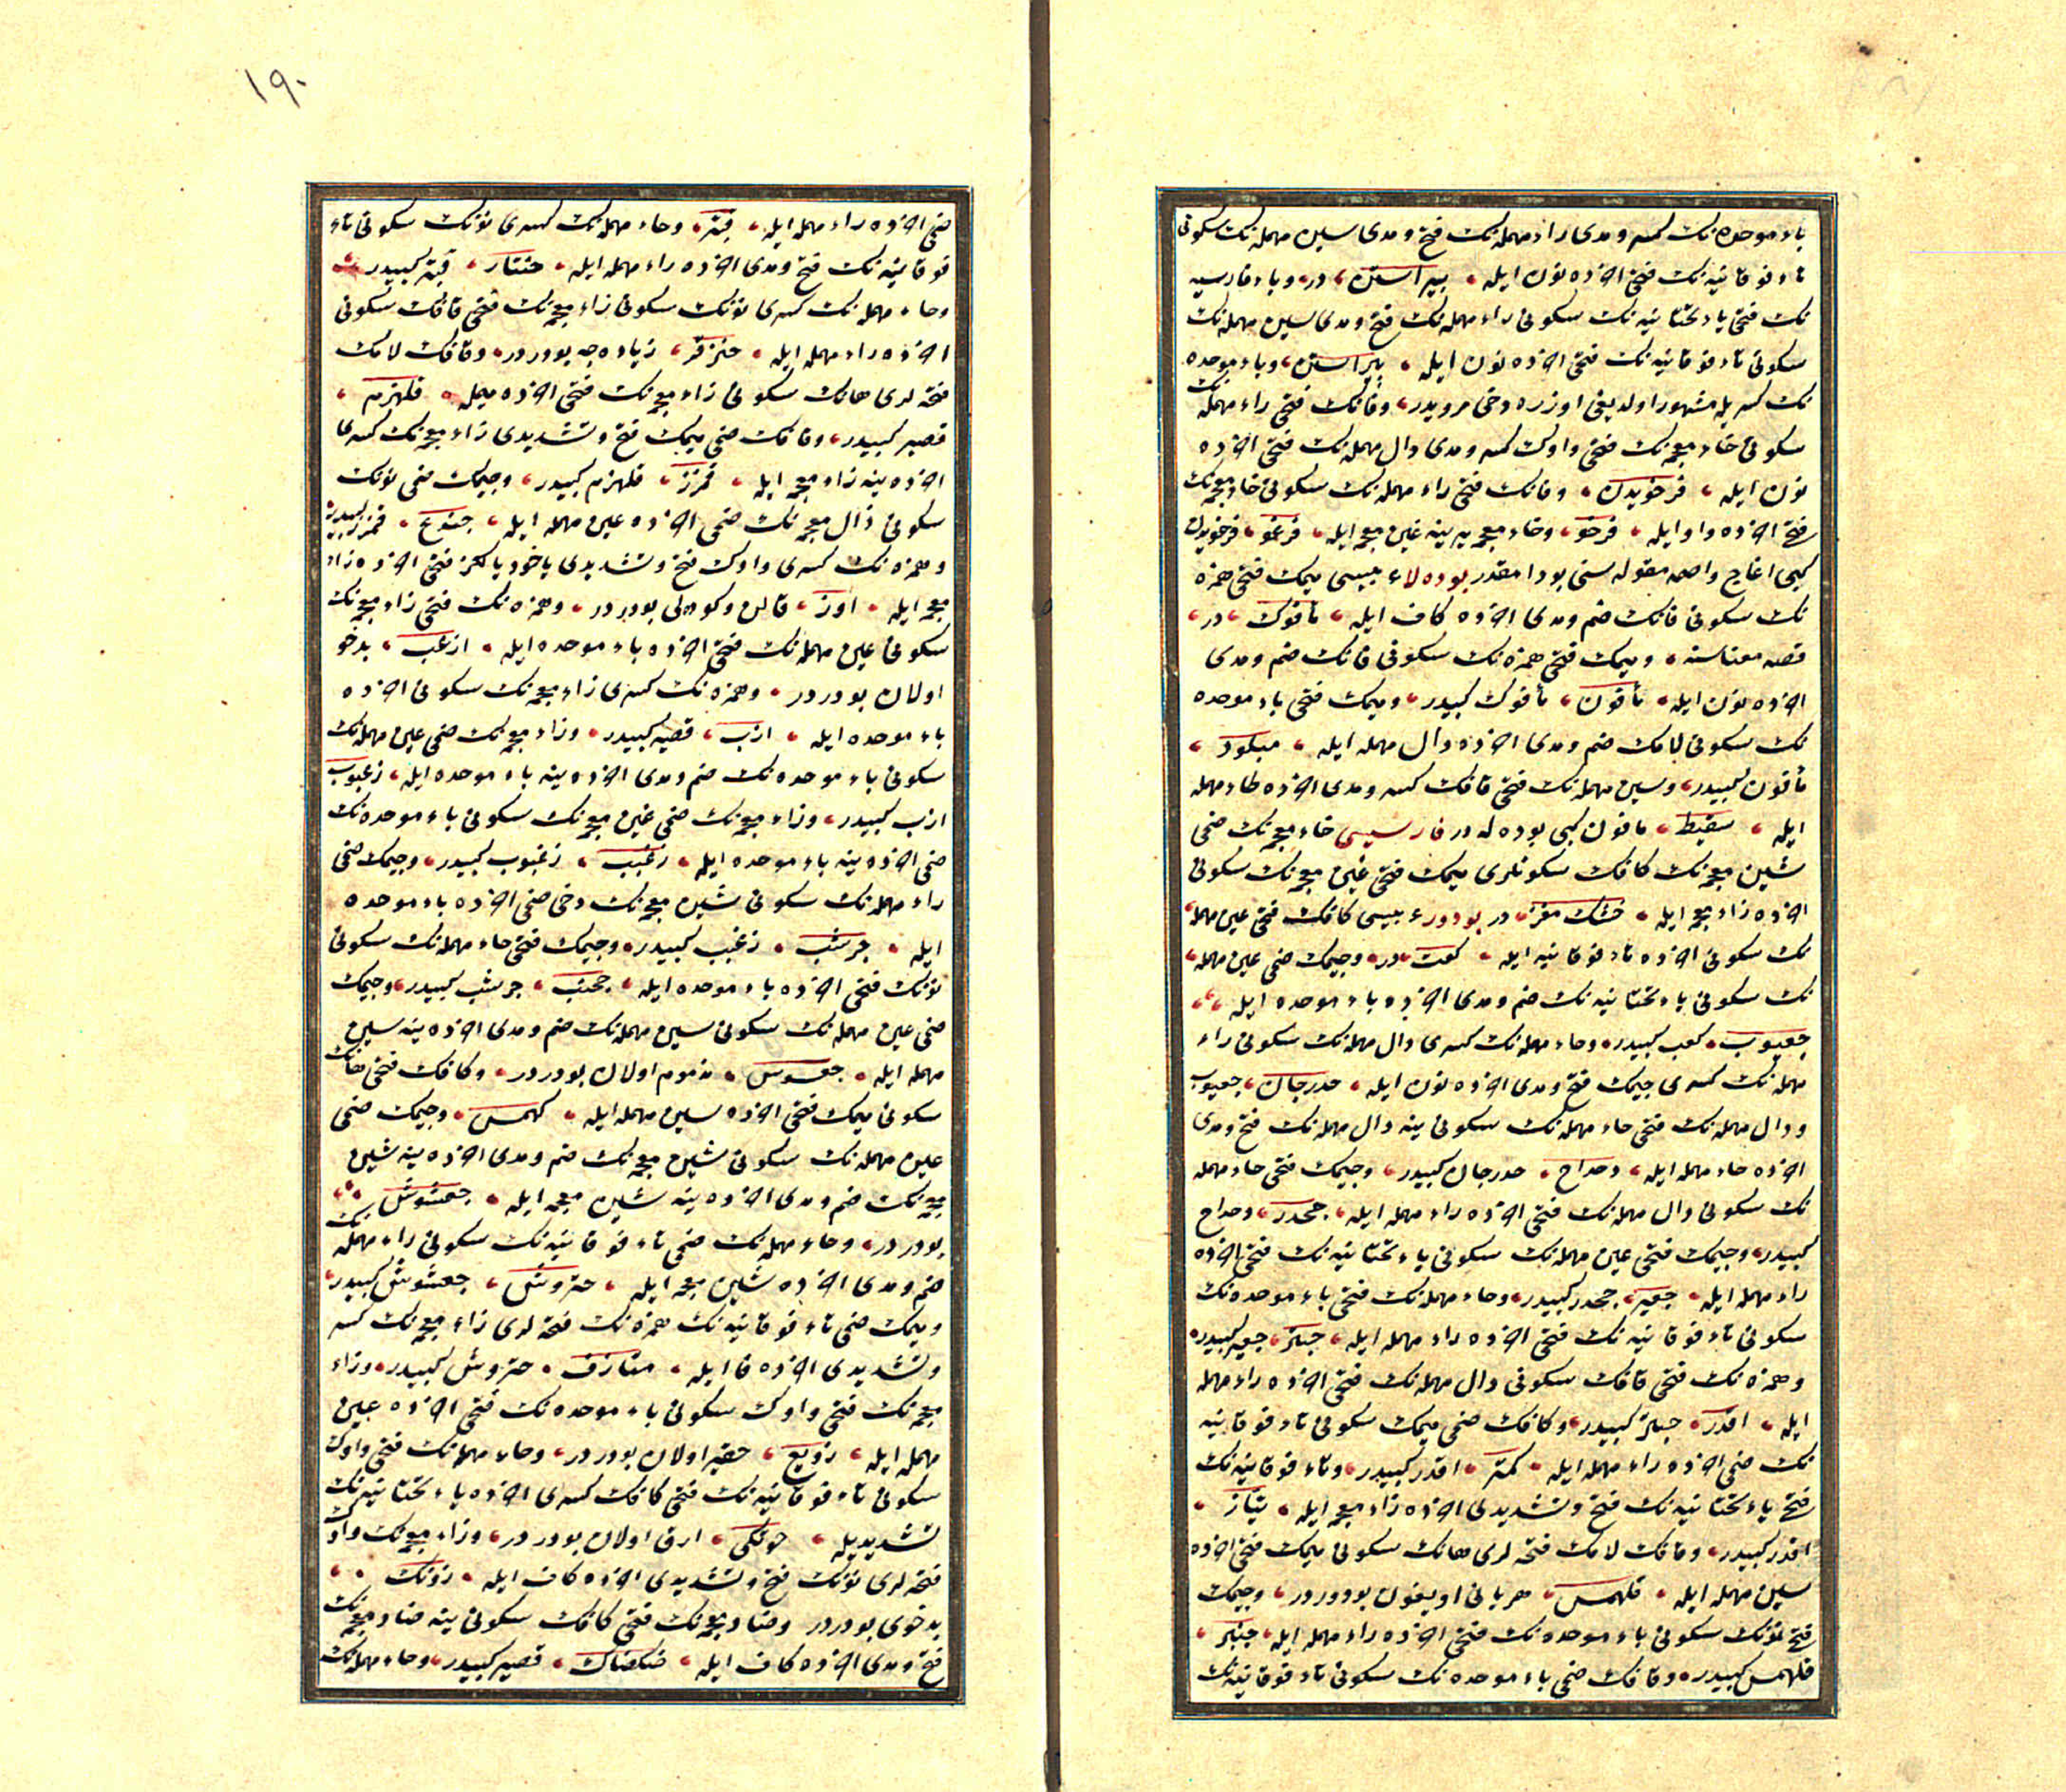 باء موحده نك كسر و مدى راء مهمله نك فتح و مدى سين مهمله نك سكونى
تاء فوقانيه نك فتحى اخرده نون ايله بيراستن در و باء فارسيه
نك فتحى ياء تحتانيه نك سكونى راء مهمله نك فتح و مدى سين مهمله نك
سكونى تاء فوقانيه نك فتحى اخرده نون ايله پيراستن و باء موحده
نك كسريله مشهور اولديغى اوزره دخى مرويدر و فانك فتحى راء مهمله نك
سكونى خاء معجمه نك فتحى واوك كسر و مدى دال مهمله نك فتحى اخرده
نون ايله فرخويدن و فانك فتحى راء مهمله نك سكونى خاء معجمه نك
فتحى اخرده واو ايله فرخو و خاء معجمه يرينه غين معجمه ايله فرغو فرخويدن
كبى اغاج و اصمه مقوله سنى بودامقدر بوده لاء عبيسى ميمك فتحى همزه
نك سكونى فانك ضم و مدى اخرده كاف ايله مأفوك در
قصه معناسنه و ميمك فتحى همزه نك سكونى فانك ضم و مدى
اخرده نون ايله مأفون مأفوك كبيدر و ميمك فتحى باء موحده
نك سكونى لامك ضم و مدى اخرده دال مهمله ايله مبلود
مأفون كبيدر و سين مهمله نك فتحى قافك كسر و مدى اخرده طاء مهمله
ايله سقيط مافون كبى بوده له در فارسيسى خاء معجمه نك ضمى
شين معجمه نك كافك سكونلرى ميمك فتحى غين معجمه نك سكونى
اخرده زاء معجمه ايله خشك مغز در بودور عبيسى كافك فتحى عين مهمله
نك سكونى اخرده تاء فوقانيه ايله كعت در و جيمك ضمى عين مهمله
نك سكونى ياء تحتانيه نك ضم و مدى اخرده باء موحده ايله
جعيوب كعب كبيدر و حاء مهمله نك كسرى دال مهمله نك سكونى راء
مهمله نك كسرى جيمك فتح و مدى اخرده نون ايله حدرجان جعيوب
و دال مهمله نك فتحى حاء مهمله نك سكونى ينه دال مهمله نك فتح و مدى
اخرده حاء مهمله ايله دحداح حدرجان كبيدر و جيمك فتحى حاء مهمله
نك سكونى دال مهمله نك فتحى اخرده راء مهمله ايله جحدر دحداح
كبيدر و جيمك فتحى عين مهمله نك سكونى ياء تحتانيه نك فتحى اخرده
راء مهمله ايله جعير جحدر كبيدر و حاء مهمله نك فتحى باء موحده نك
سكونى تاء فوقانيه نك فتحى اخرده راء مهمله ايله حبتر جعير كبيدر
و همزه نك فتحى قافك سكونى دال مهمله نك فتحى اخرده راء مهمله
ايله اقدر حبتر كبيدر و كافك ضمى ميمك سكونى تاء فوقانيه
نك ضمى اخرده راء مهمله ايله كمتر اقدر كبيدر و تاء فوقانيه نك
فتح ياء تحتانيه نك فتح و تشديدى اخرده زاء معجمه ايله تياز
اقدر كبيدر و قافك لامك فتحه لرى هانك سكونى ميمك فتحى اخرده
سين مهمله ايله قلهمس هر يانى اويغون بودوردر و جيمك
فتح نونك سكونى باء موحده نك فتحى اخرده راء مهمله ايله جنبر
قلهمس كبيدر و قافك ضمى باء موحده نك سكونى تاء فوقانيه نك
١٩٠
ضمى اخرده راء مهمله ايله قبتر و حاء مهمله نك كسرى نونك سكونى تاء
فوقانيه نك فتح و مدى اخرده راء مهمله ايله حنتار قبتر كبيدر
و حاء مهمله نك كسرى نونك سكونى زاء معجمه نك فتحى قافك سكونى
اخرده راء مهمله ايله حنزقر زياده جه بودوردر و قافك لامك
فتحه لرى هانك سكونى زاء معجمه نك فتحى اخرده ميمله قلهزم
قصير كبيدر و قافك ضمى ميمك فتح و تشديدى زاء معجمه نك كسرى
اخرده ينه زاء معجمه ايله قمزز قلهزم كبيدر و جيمك ضمى نونك
سكونى ذال معجمه نك ضمى اخرده عين مهمله ايله جنذع قمزز كبيدر
و همزه نك كسرى واوك فتح و تشديدى ياخود يالكز فتحى اخرده زاء
معجمه ايله اوز قالن و كوده لى بودوردر و همزه نك فتحى زاء معجمه نك
سكونى عين مهمله نك فتحى اخرده باء موحده ايله ازعب بدخو
اولان بودردر و همزه نك كسرى زاء معجمه نك سكونى اخرده
باء موحده ايله ازب قصير كبيدر و زاء معجمه نك ضمى عين مهمله نك
سكونى باء موحده نك ضم و مدى اخرده ينه باء موحده ايله زعبوب
ازب كبيدر و زاء معجمه نك ضمى غين معجمه نك سكونى باء موحده نك
ضمى اخرده ينه باء موحده ايله زغبب زغبوب كبيدر و جيمك ضمى
راء مهمله نك سكونى شين معجمه نك دخى ضمى اخرده باء موحده
ايله جرشب زغبب كبيدر و جيمك فتحى حاء مهمله نك سكونى
نونك فتحى اخرده باء موحده ايله جحنب جرشب كبيدر و جيمك
ضمى عين مهمله نك سكونى سين مهمله نك ضم و مدى اخرده ينه سين
مهمله ايله جعسوس مذموم اولان بودردر و كافك فتحى هانك
سكونى ميمك فتحى اخرده سين مهمله ايله كهمس و جيمك ضمى
عين مهمله نك سكونى شين معجمه نك ضم و مدى اخرده ينه شين
معجمه نك ضم و مدى اخرده ينه شين معجمه ايله جعشوش
بودردر و حاء مهمله نك ضمى تاء فوقانيه نك سكونى راء مهمله نك
ضم و مدى اخرده شين معجمه ايله حتروش جعشوش كبيدر
و ميمك ضمى تاء فوقانيه نك همزه نك فتحه لرى زاء معجمه نك كسر
و تشديدى اخرده فا ايله متازف حتروش كبيدر و زاء
معجمه نك فتحى واوك سكونى باء موحده نك فتحى اخرده عين
مهمله ايله زوبع حقير اولان بودردر و حاء مهمله نك فتحى واوك
سكونى تاء فوقانيه نك فتحى كافك كسرى اخرده ياء تحتانيه نك
تشديديله حوتكى ارق اولان بودردر و زاء معجمه نك واوك
فتحه لرى نونك فتح و تشديدى اخرده كاف ايله زونك
بدخوى بودردر و ضاد معجمه نك فتحى كافك سكونى ينه ضاد معجمه نك
فتح و مدى اخرده كاف ايله ضكضاك قصير كبيدر و حاء مهمله نك